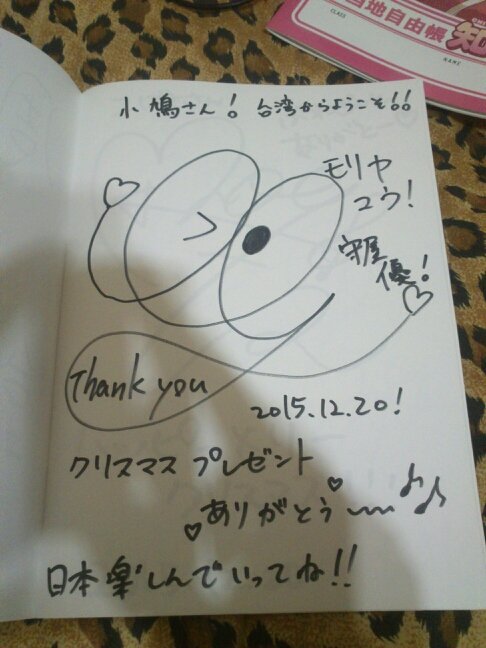 当地自由帳
CLASS
NAME
知
小鳩さん! 台湾からようこそ!!
モリヤ
ユウ!
守屋
優!
Thank you
2015.12.20!
クリスマス プレゼント
ありがとう〰♪♪
日本楽しんでいってね!!